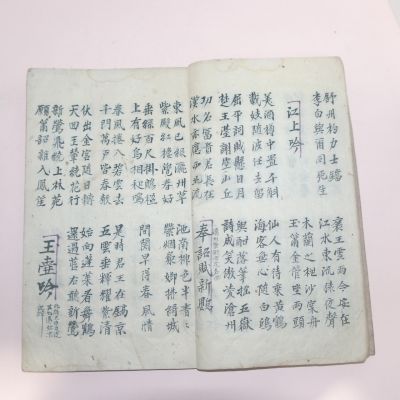 舒州杓力士鐺
李白與爾同死生
襄王雲雨今安在
江水東流猿夜聲
江上吟
木蘭之枻沙棠舟
玉簫金管坐兩頭
美酒樽中置千斛
載妓隨波任去留
仙人有待乘黃鶴
海客無心隨白鷗
屈平詞賦懸日月
楚王臺榭空山丘
興酣落筆搖五嶽
詩成笑傲凌滄洲
功名富貴若長在
漢水亦應西北流
奉詔賦新鶯
東風已綠瀛洲草
紫殿紅樓覺春好
池南柳色半青青
縈烟裊娜拂綺城
垂絲百尺掛雕楹
上有好鳥相和鳴
間關早得春風情
春風捲入碧雲去
千門萬戶皆春聲
是時君王在鎬京
五雲垂輝耀紫清
仗出金宮隨日轉
天回玉輦繞花行
始向蓬萊看舞鶴
還過茝若聽新鶯
新鶯飛繞上林苑
願簫韶雜入鳳笙
玉壺吟